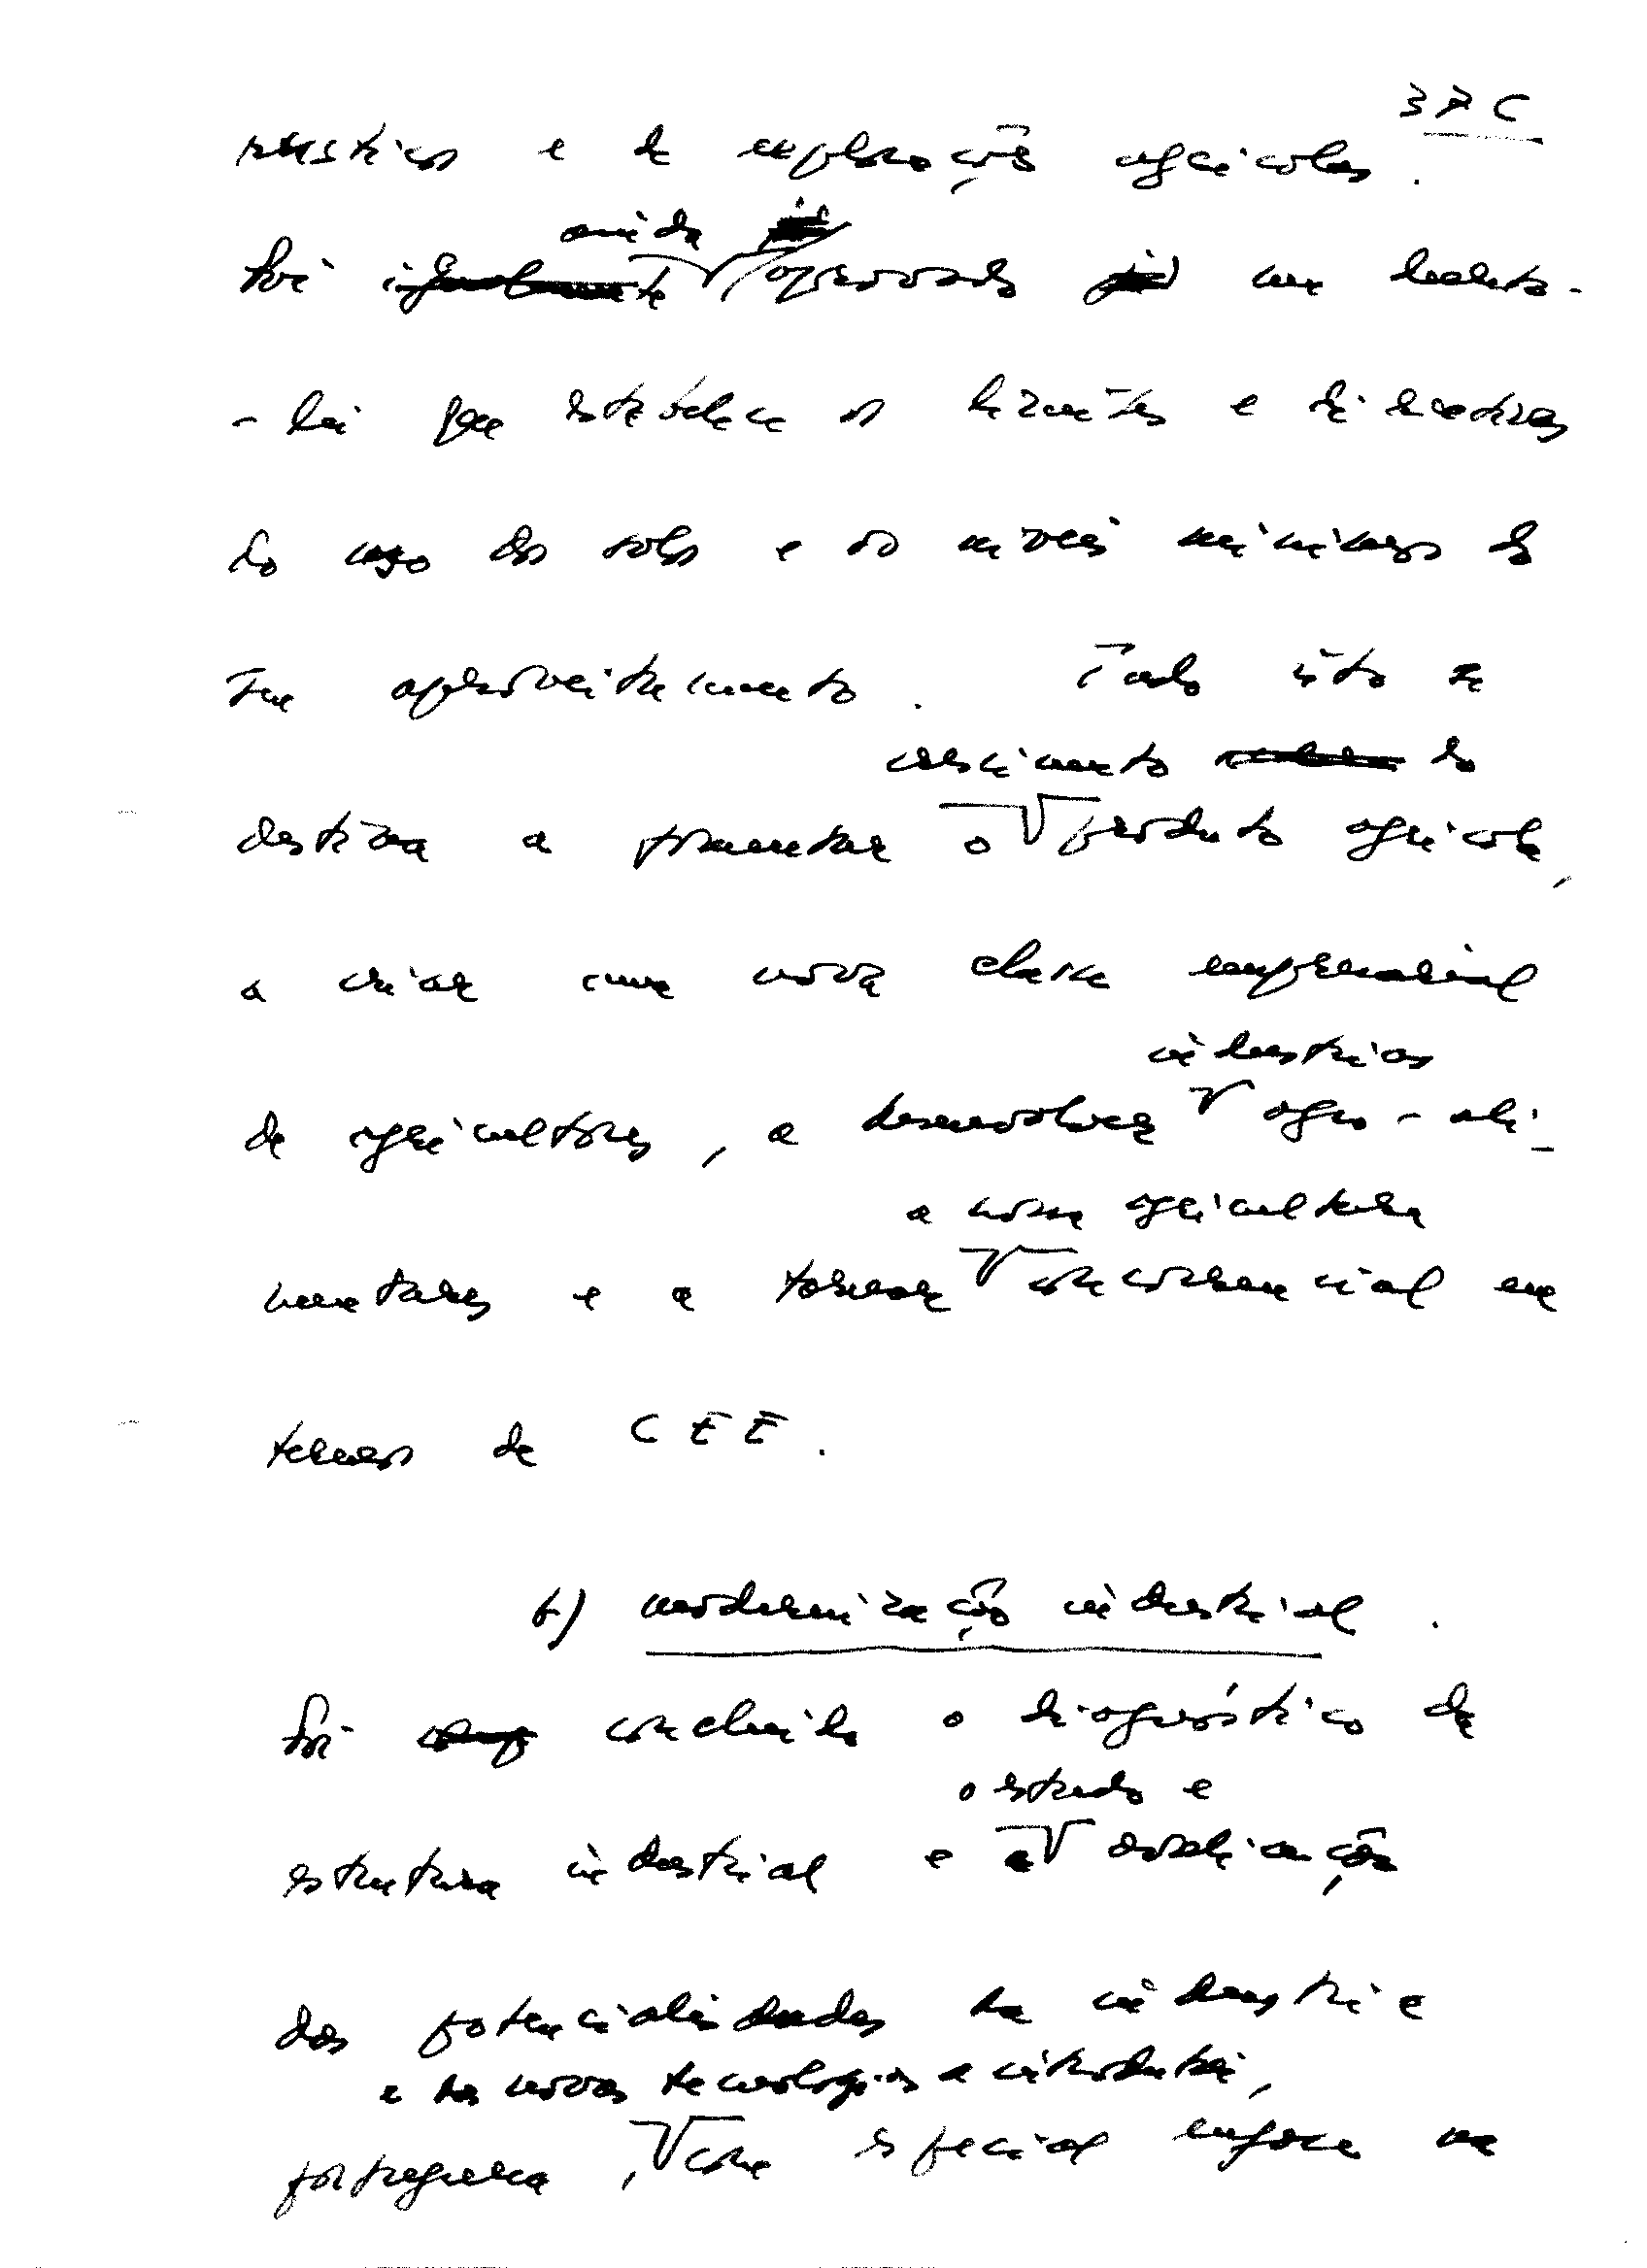 37 C
rústicos e de explorações agrícolas.
ainda
Foi igualmente aprovado um decreto-
-lei que estabelece os limites e directivas
do uso dos solos e os níveis mínimos do
seu aproveitamento. Tudo isto se
crescimento do
destina a fomentar o produto agrícola,
a criar uma nova classe empresarial
indústrias
de agricultores, a desenvolver agro-ali-
a nossa agricultura
mentares e a tornar concorrencial em
termos de CEE.
b) modernização industrial.
Foi concluído o diagnóstico da
o estudo e
estrutura industrial e a avaliação
das potencialidades da indústria
e das novas tecnologias a introduzir,
portuguesa, com especial enfoque na